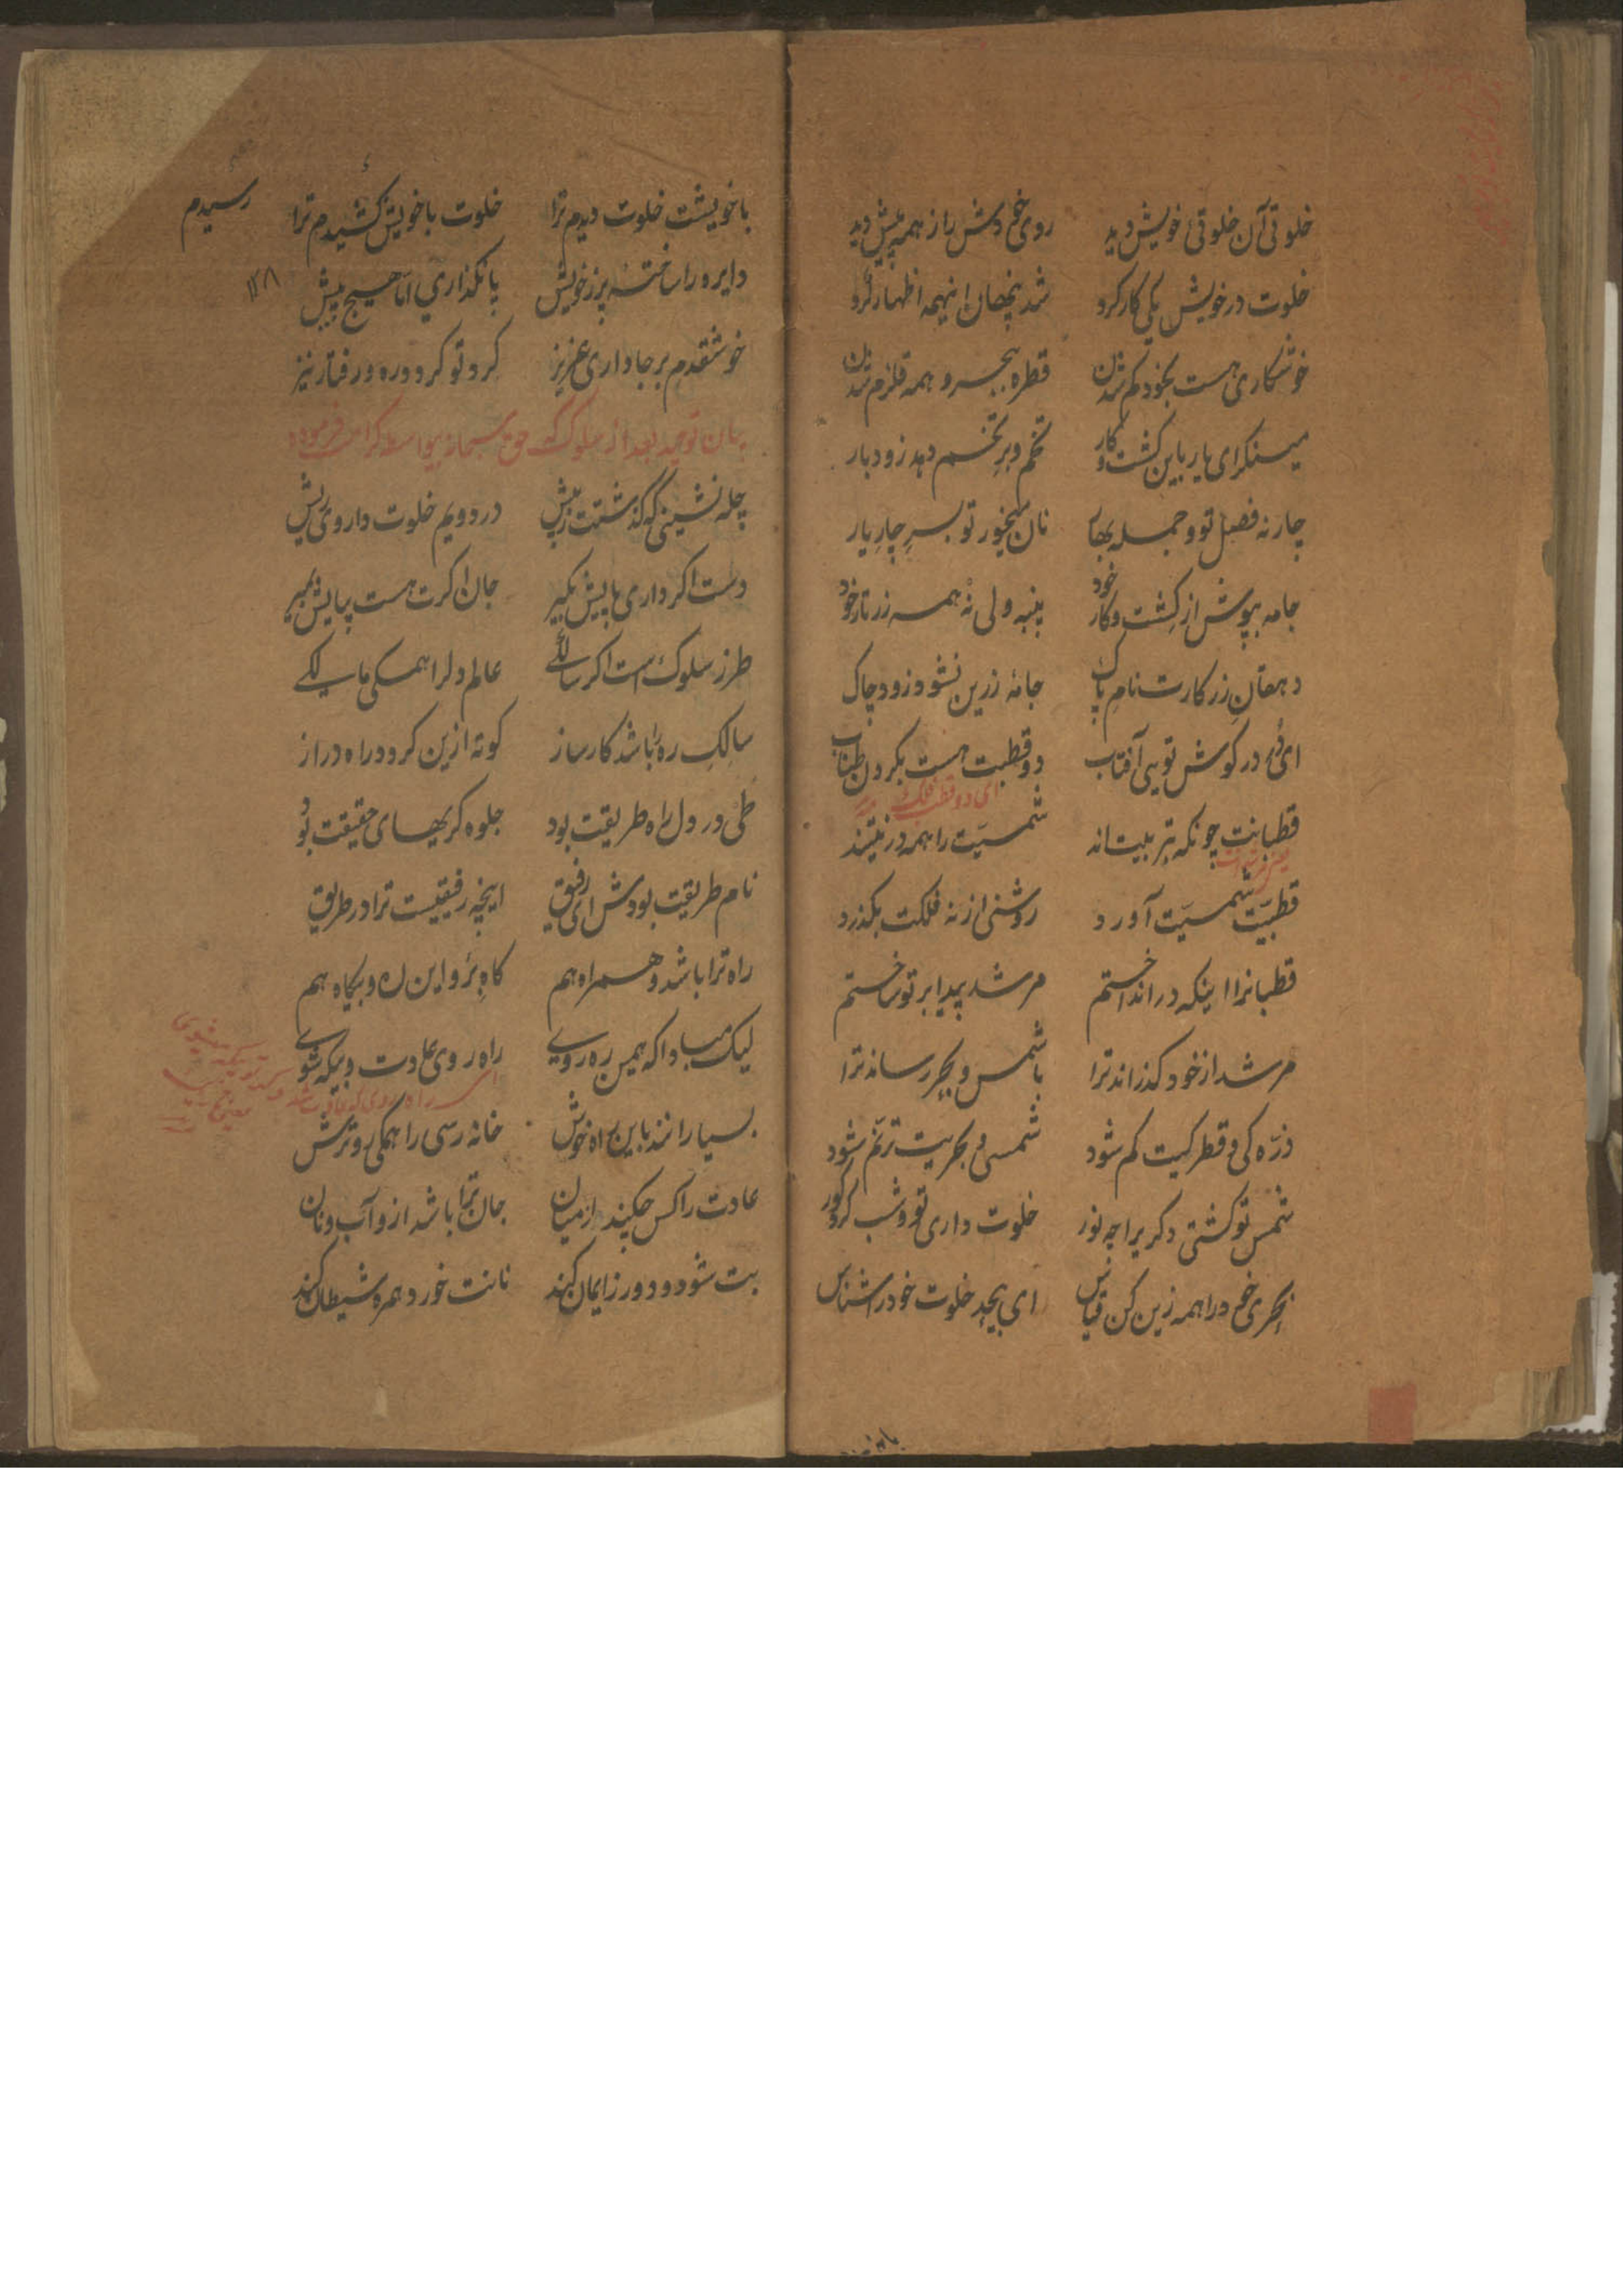 خلوتی آن خلوتی خویش دید روی خم دش را ز همه پیش دید
خلوت در خویش یکی کار کرد شد پنهان اینهمه اظهار کرد
خوشکاری هست بخود کم شدن قطره ببحر و همه قلزم شدن
مینکرای یار باین کشت و کار تخم و بر تخم دهد زود بار
چار نه فصل تو و جمله بهار نان میخور تو بسرِ چارِ یار
جامه بپوش از کِشت و کار خود پنبه ولی نه همه زر تار خود
دهقانِ زر کارت نامِ پاک جامهٔ زرین نشود زود چاک
ای در کوش تویی آفتاب دو قطبت هست بکردن طناب
ای دو قطب فلک
قطبانت چونکه بتربیت‌اند شمسیّت را همه در نیتند
قطبیّت شمسیّت آورد روشنی از نه فلکت بکذرد
قطبانرا اینکه در انداختم مرشد پیدا بر تو ساختم
مرشد از خود کذراند ترا با شمس و بحر رساند ترا
ذرّه کی و قطرکیت کم شود شمسی و بحریت ترنّم شود
شمس تو کشتی دکر برا چه نور خلوت داری تو و شب کرد کور
بحری خم در اهمه زین کن قیاس ای بیحد خلوت خود را شناس
با خویشت خلوت دیدم ترا خلوت با خویش کشیدم ترا
رسیدم
دایره را ساختهٔ پر ز خویش پا نکذاری اما هیچ پیش
خوشقدم بر جا داری عزیز کرد تو کرد دوره و رفتار نیز
بیان توحید بعد از سلوک حق سبحانه بیواسطه کرامت فرموده
چله نشینی که کذشتت ز پیش در دویم خلوت داروی ریش
دست اکر داری پایش بکیر جان اکرت هست بپایش بمیر
طرز سلوک است اکر سالکی عالم دلرا همکی مالکی
سالکِ ره را باشد کارساز کوته ازین کردد راه دراز
طی در دل راه طریقت بود جلوه کریهای حقیقت بود
نام طریقیت بودش ای رفیق اینچه رفیقیست ترا در طریق
راه ترا باشد و همراه هم کاه برو این ره و بیکاه هم
لیک مبادا که همین ره روی راه روی عادت و بیکه شوی
بسیار انند باین راه خوش خانه رسی را همکی رو ترش
عادت را کس چکند از میان جان ترا باشد از و آب و نان
بت شود و دور ز ایمان کند نانت خورد همره شیطان کند